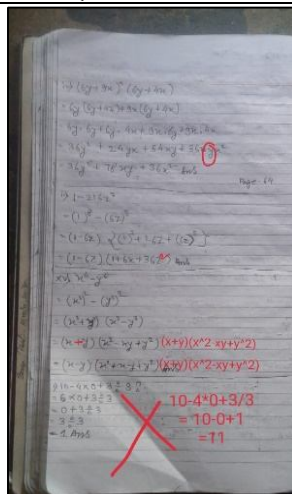 (6y+9x) (6y+4x)
= 6y (6y+4x)+9x(6y+4x)
6y·6y+6y·4x+9x·6y+9x·4x
= 36y² + 24xy + 54xy + 36x²
= 36y² + 78xy + 36x² Ans
Page 64
1-216z³
= (1)³ - (6z)³
= (1-6z) {(1)²+1·6z+(6z)²}
= (1-6z) (1+6z+36z²) Ans
x⁶-y⁶
= (x³)² - (y³)²
= (x³+y³) (x³-y³)
= (x+y) (x²-xy+y²) (x+y)(x^2-xy+y^2)
= (x-y) (x²+xy+y²) (x+y)(x^2-xy+y^2)
10-4×0+3÷3
= 6×0+3÷3
= 0+3÷3
= 3÷3
= 1 Ans
10-4*0+3/3
= 10-0+1
=11